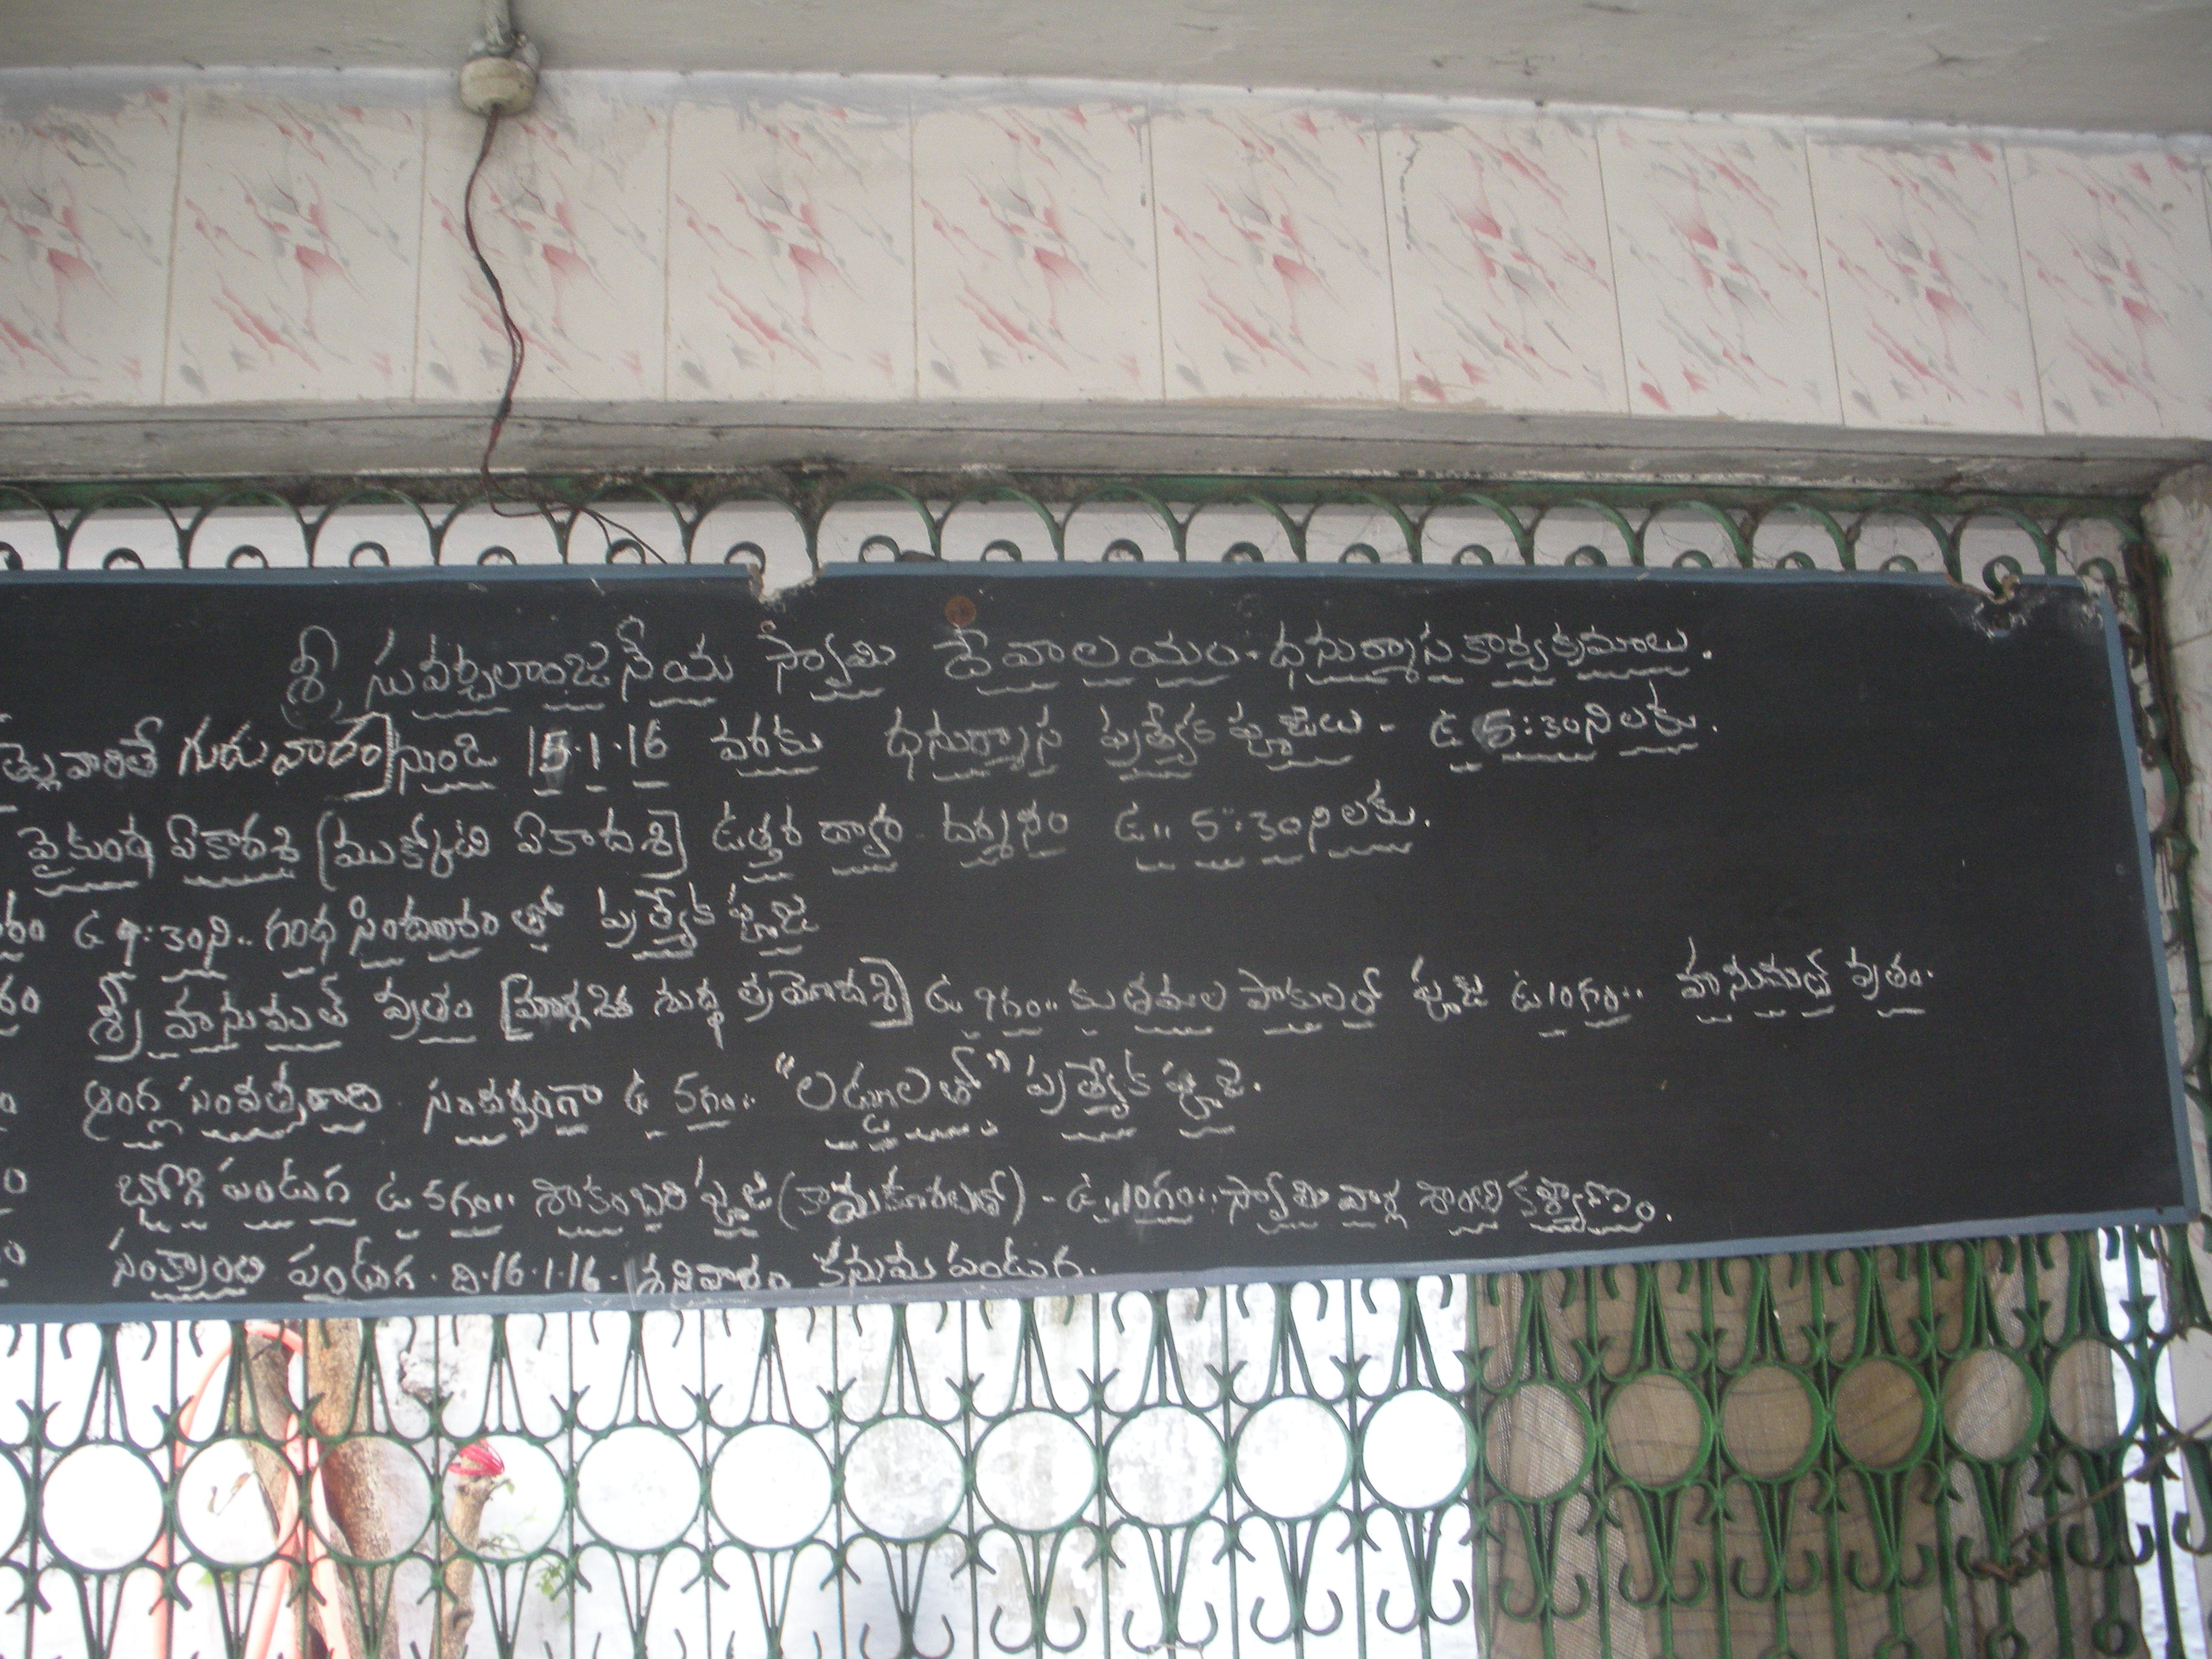 శ్రీ సువర్చలాంజనేయ స్వామి దేవాలయం - ధనుర్మాస కార్యక్రమాలు.
వారితే గురువారం] నుండి 15.1.16 వరకు ధనుర్మాస ప్రత్యేక పూజలు - ఉ 5:30ని లకు.
వైకుంఠ ఏకాదశి [ముక్కోటి ఏకాదశి] ఉత్తర ద్వార దర్శనం ఉ.. 5:30ని లకు.
ఉ 9:30ని.. గంధ సింధూరం తో ప్రత్యేక పూజ
శ్రీ హనుమత్ వ్రతం [మార్గశిర శుద్ధ త్రయోదశి] ఉ 9గం.. పాకులతో పూజ ఉ 10గం.. హనుమత్ వ్రతం.
ఆంగ్ల సంవత్సరాది సందర్భంగా ఉ 5గం.. "లడ్డూలతో" ప్రత్యేక పూజ.
భోగి పండుగ ఉ 5గం.. శాకంబరి పూజ (కాయకూరలతో) - ఉ..10గం.. స్వామి వార్ల శాంతి కళ్యాణం.
సంక్రాంతి పండుగ. ది.16.1.16. శనివారం కనుమ పండుగ.